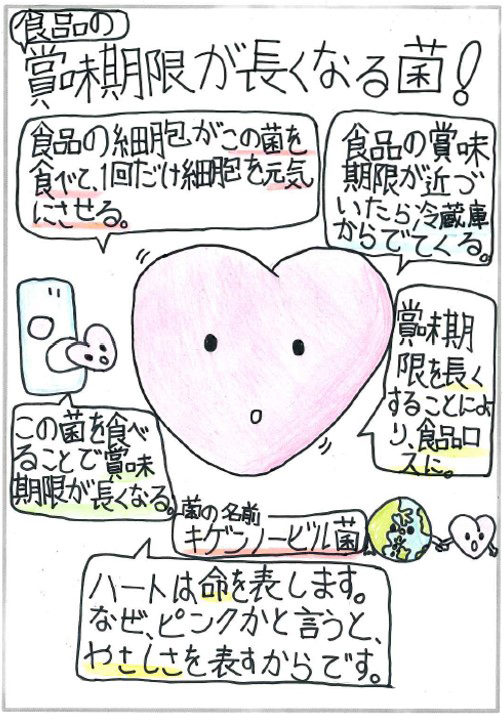 食品の
賞味期限が長くなる菌!
食品の細胞がこの菌を
食べて、1回だけ細胞を元気
にさせる。
食品の賞味
期限が近づ
いたら冷蔵庫
からでてくる。
賞味期
限を長く
することによ
り、食品ロ
スに。
この菌を食べ
ることで賞味
期限が長くなる。
菌の名前
キゲンノービル菌
ハートは、命を表します。
なぜ、ピンクかと言うと、
やさしさを表すからです。